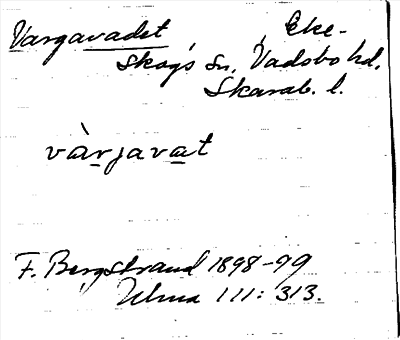 Vargavadet, Eke-
skogs sn, Vadsbo hd.
Skarab. l.
vàrjavat
F. Bergstrand 1898-99
Ulma 111: 313.